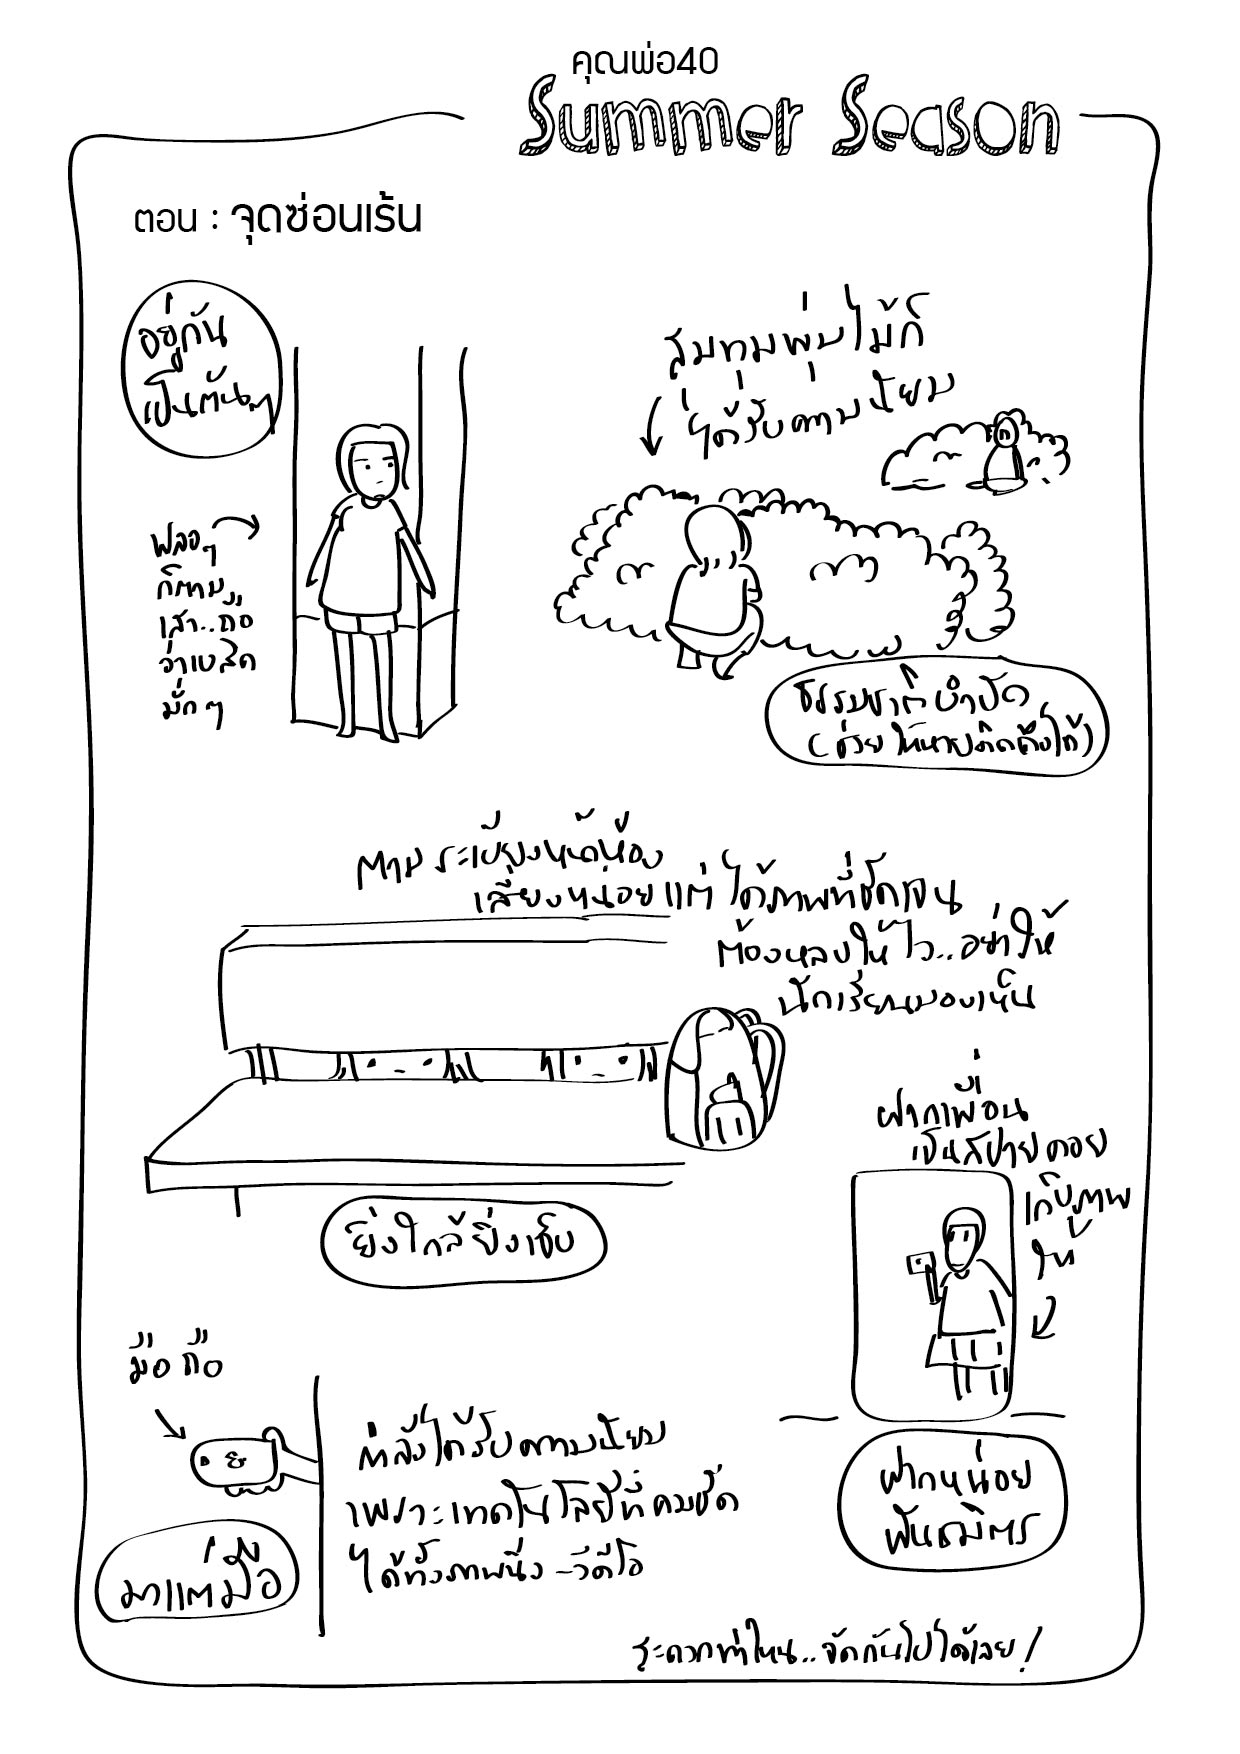 คุณพ่อ40
Summer Season
ตอน : จุดซ่อนเร้น
อยู่กัน
เป็นต้นๆ
หลอๆ
ก็ตาม
เสา..ถือ
ว่าเบสิค
มั่กๆ
สุมทุมพุ่มไม้ก็
ได้รับความนิยม
ธรรมชาติบำบัด
(ช่วยให้หายคิดถึงได้)
ตามระเบียงหน้าห้อง
เสี่ยงหน่อยแต่ได้ภาพที่ชัดเจน
ต้องหลบให้ไว..อย่าให้
นักเรียนมองเห็น
ยิ่งใกล้ยิ่งเจ็บ
ฝากเพื่อน
เป็นสปายคอย
เก็บภาพ
ให้
ฝากหน่อย
พันธมิตร
มือถือ
มาแต่มือ
กำลังได้รับความนิยม
เพราะเทคโนโลยีที่คมชัด
ได้ทั้งภาพนิ่ง-วีดีโอ
สะดวกท่าไหน..จัดกันไปได้เลย!